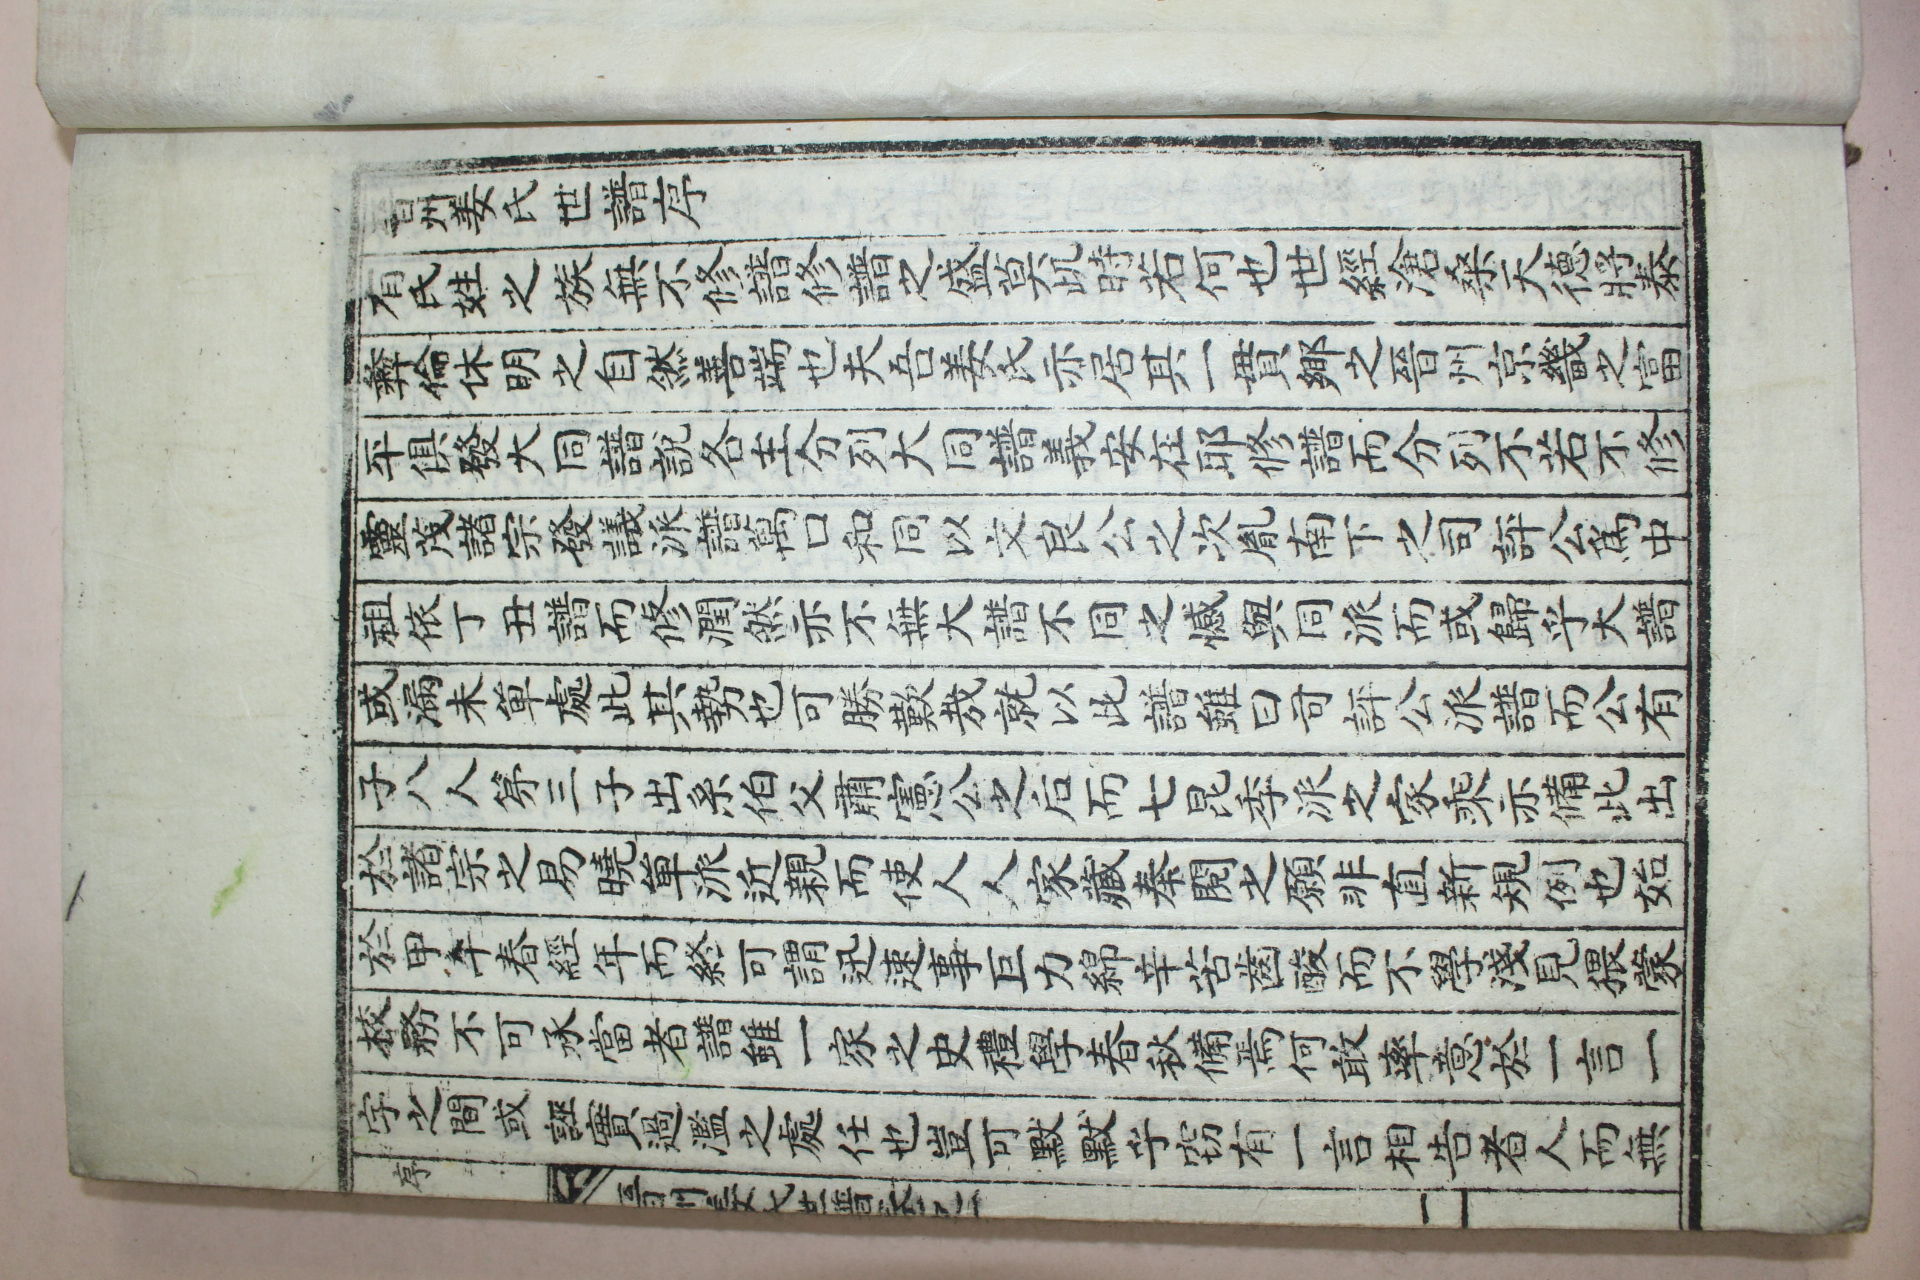 晋州姜氏世譜序
有氏姓之族無不修譜修譜之盛莫此時若何也世經滄桑天德將泰
彛倫休明之自然善端也夫吾姜氏亦居其一貫鄉之晉州京畿之富
平俱發大同譜說各主分列大同譜義安在耶修譜而分列不若不修
靈茂諸宗發議派譜萬口和同以文良公之次胤南下之司評公爲中
祖依丁丑譜而修潤然亦不無大譜不同之憾與同派而或歸乎大譜
或漏未單處此其勢也可勝歎哉就以此譜雖曰司評公派譜而公有
子八人第三子出系伯父肅憲公之后而七昆季派之家乘亦備此出
於諸宗之易曉單派近親而使人人家藏奉閱之願非直新規例也始
於甲午春經年而終可謂迅速事巨力綿辛苦齒酸而不學淺見猥蒙
校務不可承當者譜雖一家之史禮學春秋備焉何敢率意於一言一
字之間或誣實過濫之處任也豈可默默乎窃有一言相告者人而無
序
晋州姜氏世譜卷之一
一